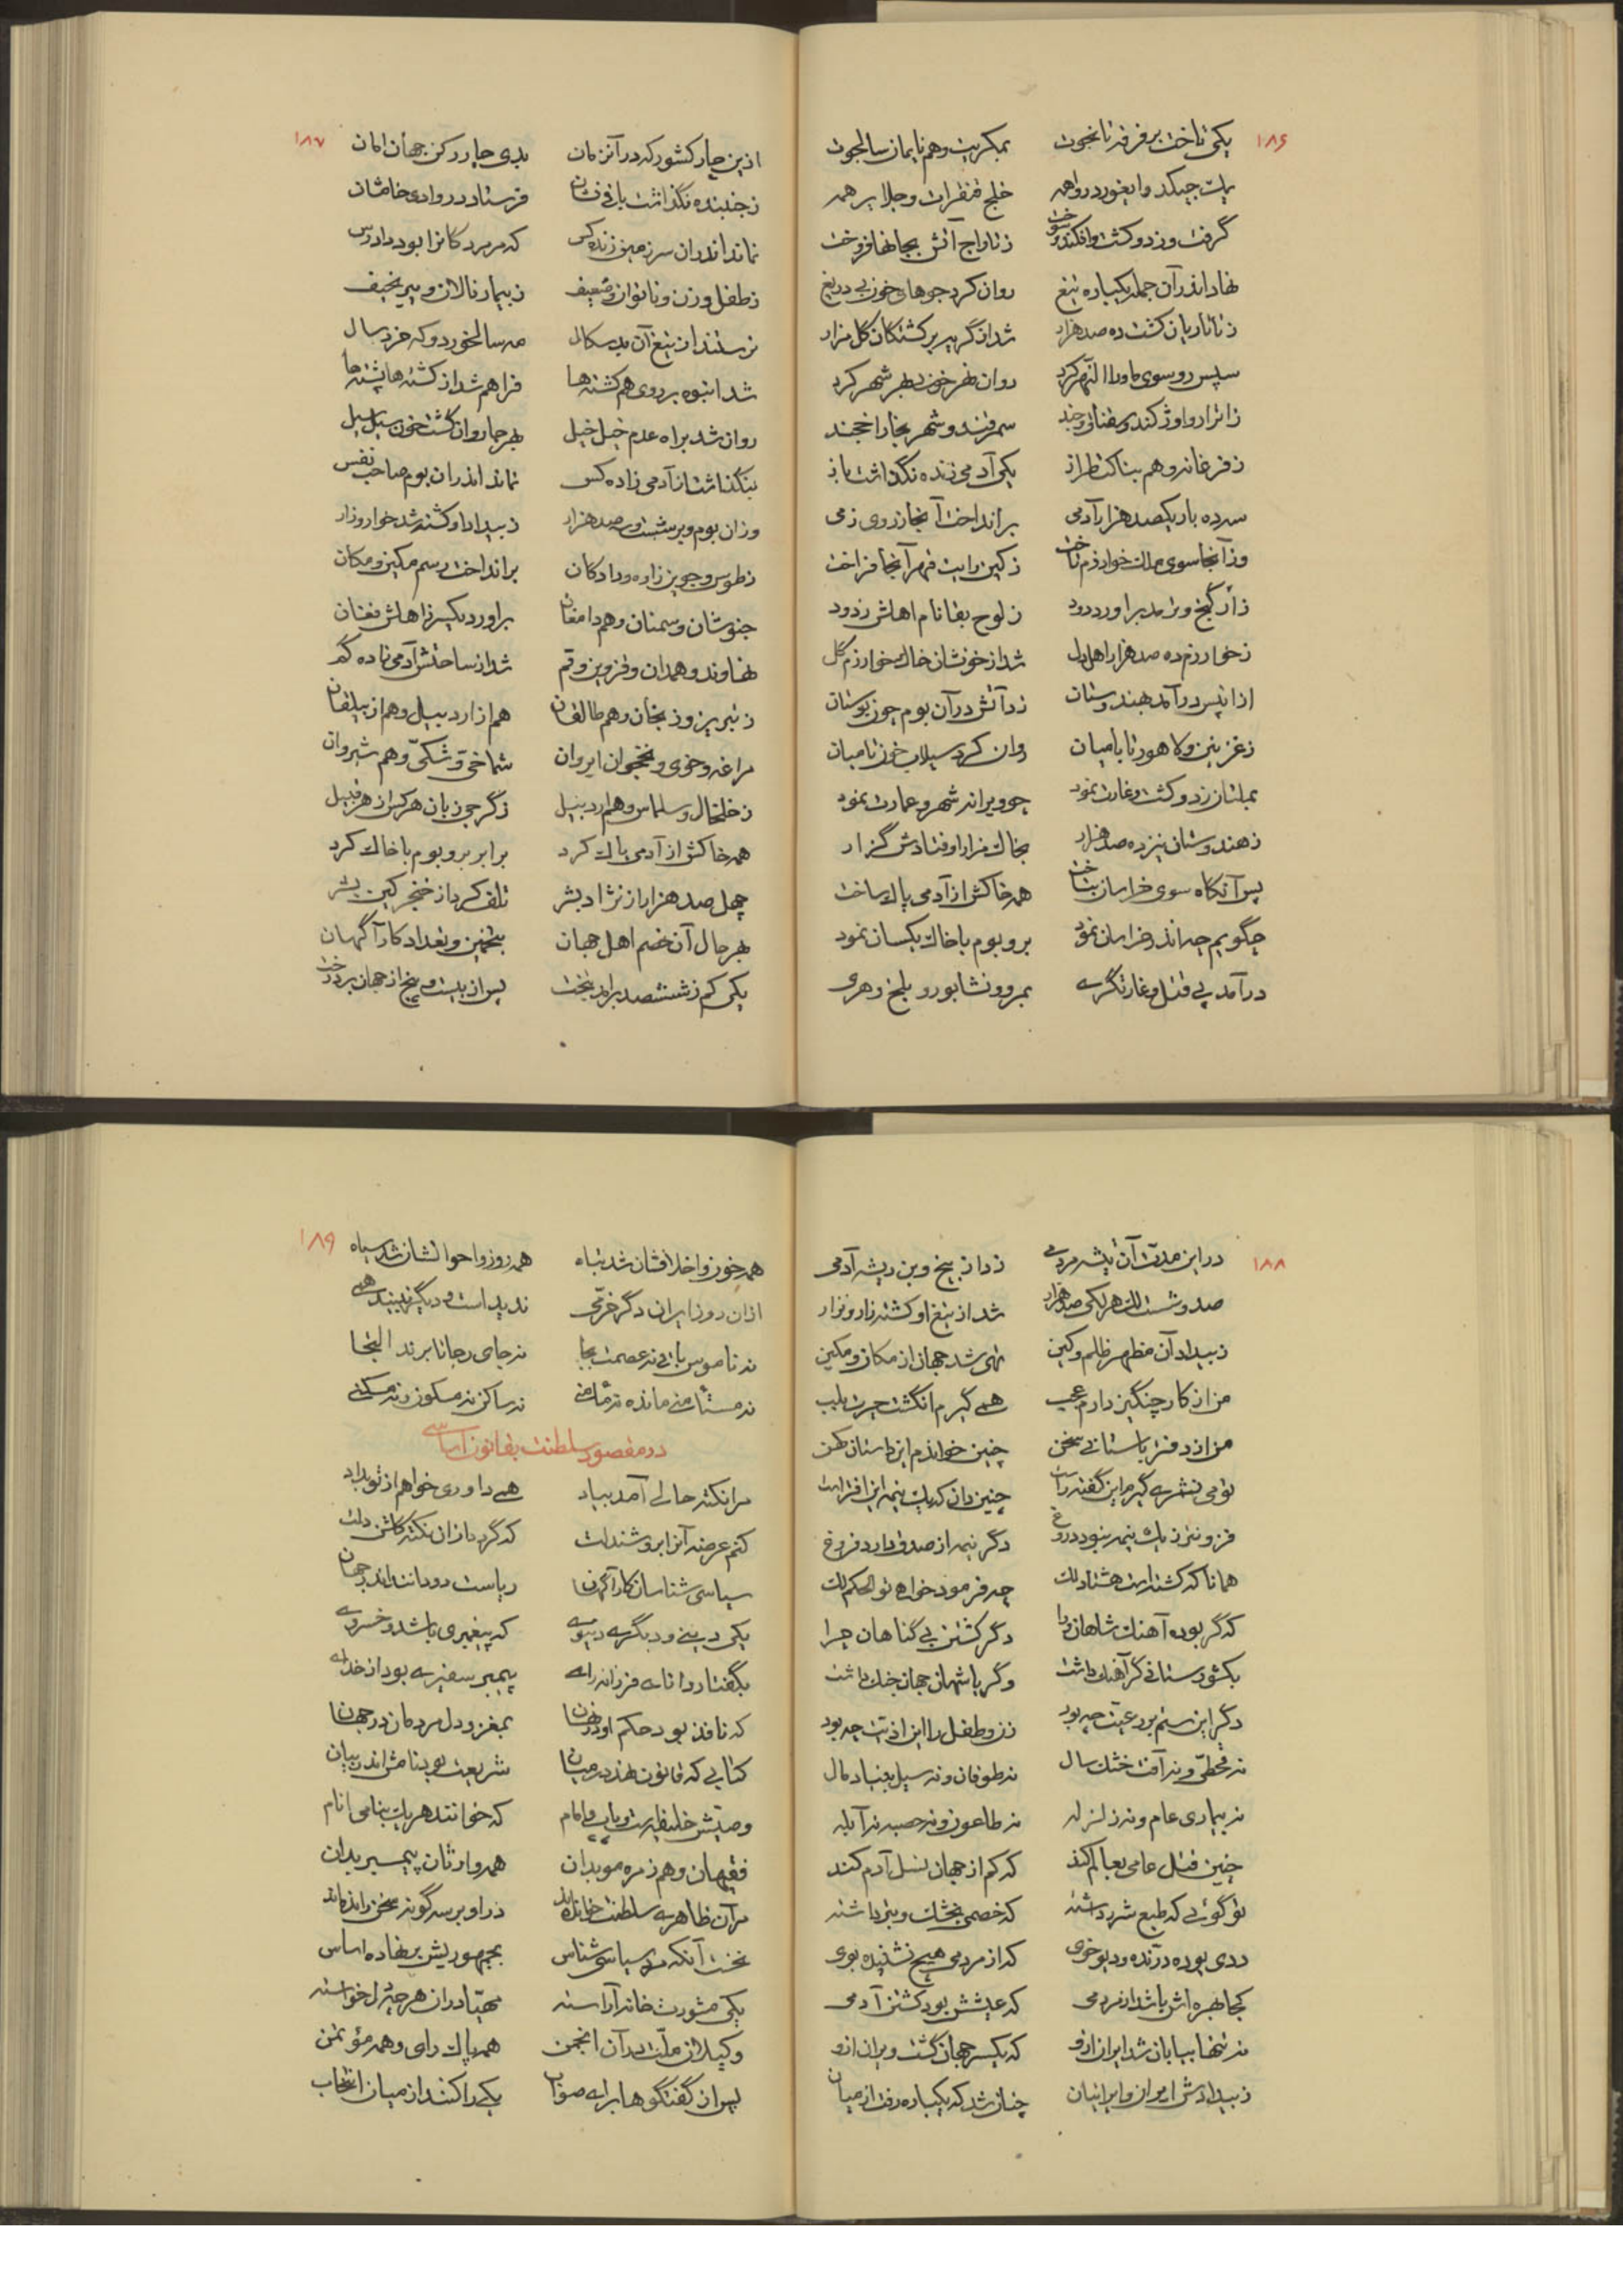 ۱۸۶
یکی تاخت بر فرقه تانجوت بمکریت و هم نایمان سالجوت
خلج قنقرات و جلایر همه
گرفت و زد و کشت و افکند و سوخت ز تاراج آتش بجانها فروخت
نهاد اندر آن جمله یکباره تیغ روان کرد جوهای خون بی دریغ
ز تاتاریان کشت ده صد هزار شد از گریه بر کشتگان گل مزار
سپس رو سوی ماوراء النهر کرد روان نهر خون بهر شهر کرد
سمرقند و شهر بخارا خجند
ز فرغانه و هم بناکت طراز یکی آدمی زنده نگذاشت باز
سه ده بار یکصد هزار آدمی برانداخت آنجا ز روی زمی
وز آنجا سوی ملک خوارزم تاخت ز کین رایت قهر آنجا فراخت
ز لوح بقا نام اهلش زدود
ز خوارزم ده صد هزار اهل دل شد از خونشان خاک خوارزم گل
از آن پس در آمد بهندوستان زد آتش در آن بوم چون بوستان
ز غزنین و لاهور تا بامیان روان کرد سیلاب خون تا میان
بملتان زد و کشت و غارت نمود چو ویرانه شهر و عمارت نمود
ز هندوستان نیز ده صد هزار بخاک مزار اوفتادش گزار
پس آنگاه سوی خراسان بتاخت همه خاکش از آدمی پاک ساخت
چگویم چه اندر خراسان نمود بر و بوم با خاک یکسان نمود
در آمد پی قتل و غارتگری بمرو و نشابور و بلخ و هری
۱۸۷
ازین چار کشور که در آنزمان بدی چار رکن جهان امان
ز جنبنده نگذاشت باقی نشان فرستاد در وادی خامشان
نماند اندران سرزمین زنده کس که مر مردگانرا بود دادرس
ز طفل و زن و ناتوان و ضعیف ز بیمار نالان و پیر نحیف
نرستند از تیغ آن بدسگال مه سالخورد و که خردسال
شد انبوه بر روی هم کشته‌ها فراهم شد از کشته‌ها پشته‌ها
روان شد براه عدم خیل خیل بهر جا روان گشت خون سیل سیل
بنگذاشت از آدمی زاده کس نماند اندران بوم صاحب نفس
وزان بوم و بر شست و سه صد هزار ز بیداد او کشته شد خوار و زار
ز طوس و جوین زاوه و رادکان برانداخت رسم مکین و مکان
جنوشان و سمنان و هم دامغان برآورد یکسر ز اهلش فغان
نهاوند و همدان و قزوین و قم شد از ساحتش آدمی زاده گم
ز تبریز و زنجان و هم طالقان هم از اردبیل و هم از بیلقان
مراغه و خوی و نخجوان ایروان شماخی و شکّی و هم شیروان
ز خلخال و سلماس و هم اردبیل ز گرجی زبان هر کس از هر قبیل
همه خاکش از آدمی پاک کرد برابر بر و بوم با خاک کرد
چهل صد هزار از نژاد بشر تلف کرد از خنجر کین بشر
بهر حال آن خصم اهل جهان بتخمین و تعداد کارآگهان
یکی کم ز ششصد برآمد بتخت پس از بیست و پنج از جهان برد رخت
۱۸۸
در این مدت آن تیشه مردمی زد از بیخ و بن ریشه آدمی
صد و شست لک هر لکی صد هزار شد از تیغ او کشته زار و نزار
ز بیداد آن مظهر ظلم و کین تهی شد جهان از مکان و مکین
من از کار چنگیز دارم عجب همی گیرم انگشت حیرت بلب
من از دفتر باستانی سخن چنین خواندم این داستان کهن
تو می نشمری گیرم این گفته راست چنین دان که یک نیمه این افتراست
فزونتر ز یک نیمه نبود دروغ دگر نیمه از صدق دارد فروغ
همانا که کشته است هشتاد لک چه فرمود خواهی تو الحکم لک
که گر بوده آهنگ شاهان ورا دگر کشتن بی گناهان چرا
بکشورستانی گر آهنگ داشت وگر با شهان جهان جنگ داشت
دگر این ستم بر رعیت چه بود زن و طفل را این اذیت چه بود
نه قحطی و نه آفت خشک سال نه طوفان و نه سیل بنیاد مال
نه بیماری عام و نه زلزله نه طاعون و نه حصبه نه آبله
چنین قتل عامی بعالم کند که کم از جهان نسل آدم کند
تو گوئی که طبع شرر داشته
ددی بوده درنده و دیو خوی که از مردمی هیچ نشنیده بوی
کجا بهره‌اش باشد از مردمی که عیشش بود کشتن آدمی
نه تنها بیابان شد ایران ازو که یکسر جهان گشت ویران ازو
ز بیدادش ایران و ایرانیان چنان شد که یکباره رفت از میان
۱۸۹
همه خون و اخلاقشان شد تباه همه روز و احوالشان شد سیاه
از آن روز ایران دگر خرمی ندید است و دیگر نبیند همی
نه ناموس باقی نه عصمت بجا نه جای رجا تا برند التجا
نه مستأمنی مانده نه مأمنی نه ساکن نه مسکون و نه مسکنی
در مقصود سلطنت بقانون اساسی
مرا نکته حالی آمد بیاد همی داوری خواهم از تو بداد
کنم عرضه آنرا بروشندلت که گردد از آن نکته گلشن دلت
سیاسی شناسان کارآگهان ریاست دو دانند اندر جهان
یکی دینی و دیگری دنیوی که پیغمبری باشد و خسروی
بگفتار دانای فرزانه رای پیمبر سفیری بود از خدای
که نافذ بود حکم او در نهان بمغز و دل مردمان در جهان
کتابی که قانون نهد در میان شریعت بود نامش اندر بیان
وصیش خلیفه است و باب و امام که خوانند هر یک بنامی انام
فقیهان و هم زمره موبدان همه وارثان پیمبر بدان
مر آن ظاهری سلطنت خوانده‌اند در او بر سه گونه سخن رانده‌اند
نخست آنکه مرد سیاسی شناس بجمهوریش بر نهاده اساس
یکی مشورت خانه آراسته مهیا در آن هر چه دل خواسته
وکیلان ملت در آن انجمن همه پاک رای و همه مؤتمن
پس از گفتگوها برای صواب یکی را کنند از میان انتخاب